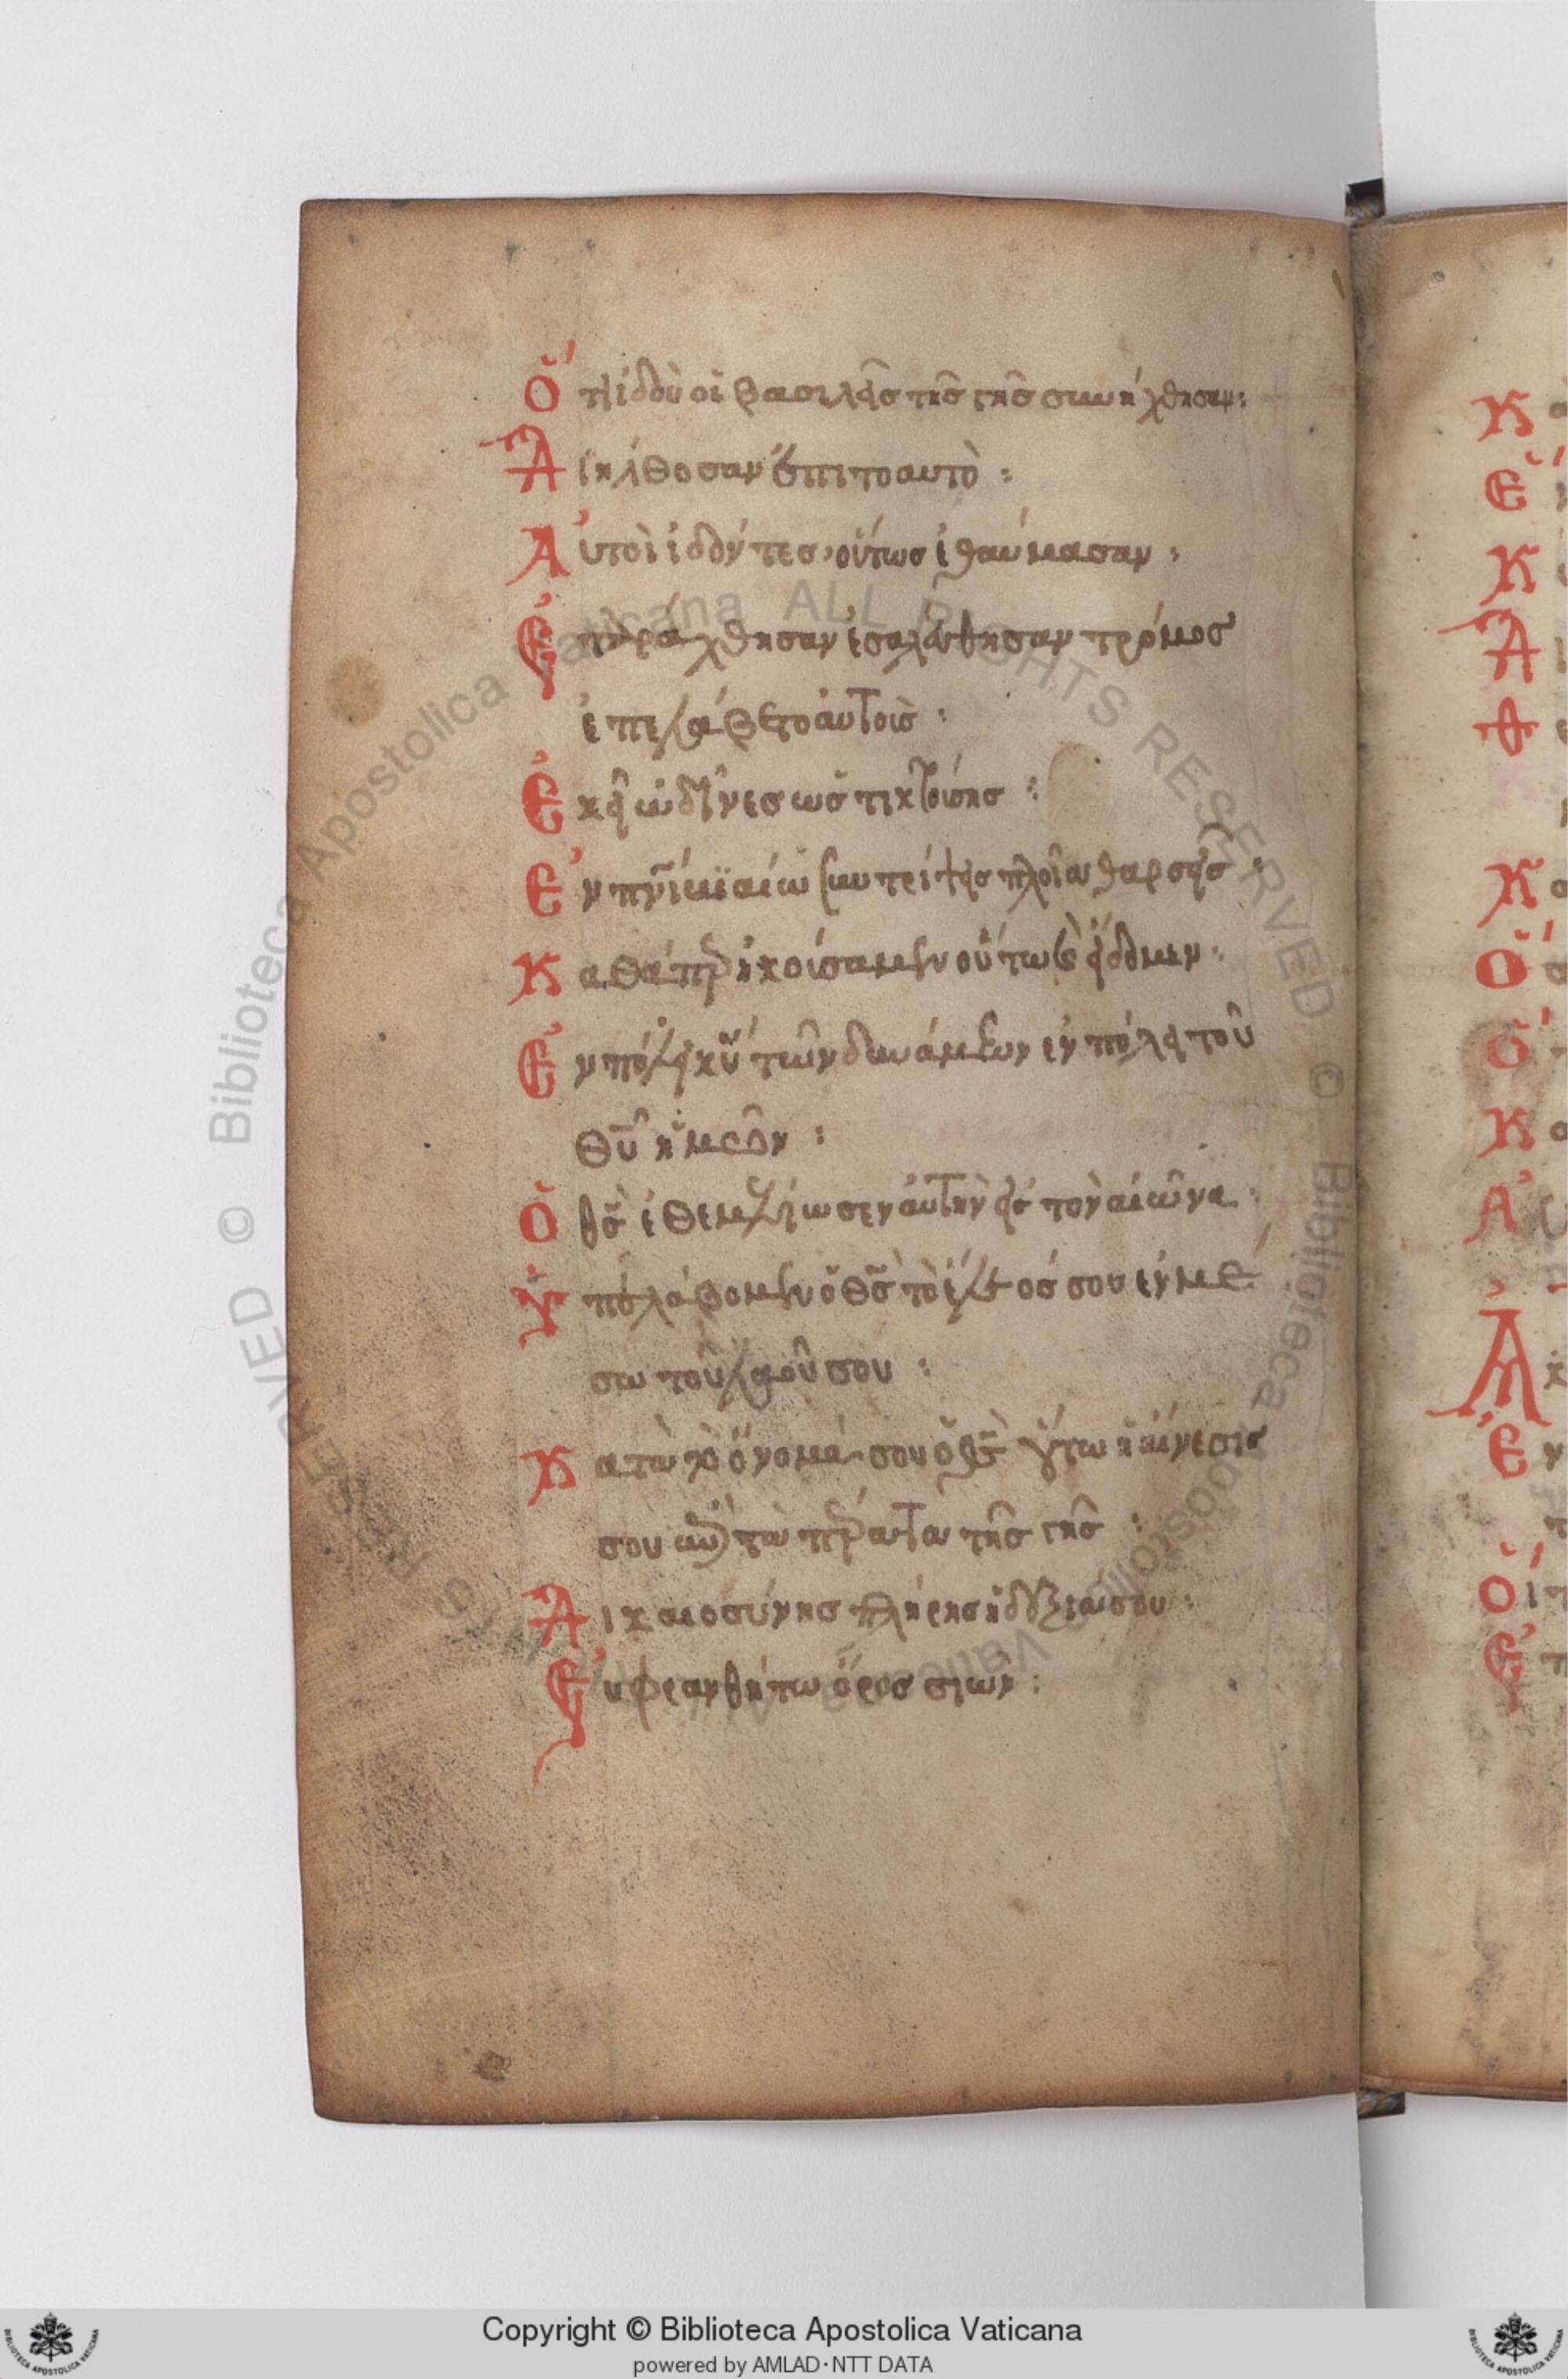 Ὅτι ἰδοὺ οἱ βασιλεῖς τῆς γῆς συνήχθησαν:
Διήλθοσαν ἐπιτοαυτὸ:
Αὐτοὶ ἰδόντες, οὕτως ἐθαύμασαν:
Ἐταράχθησαν ἐσαλεύθησαν τρόμος
ἐπελάβετο αὐτοὺς:
Ἐκεῖ ὠδῖνες ὡς τικτούσης:
Ἐν πνι βιαίω συντρίψεις πλοῖα θαρσεῖς:
Καθάπερ ἠκούσαμεν οὕτως εἴδομεν:
Ἐν πόλει κυ τῶν δυνάμεων ἐν πόλει τοῦ
θυ ἡμῶν:
Ὁ θς ἐθεμελίωσεν αὐτὴν εἰς τὸν αἰῶνα:
Ὑπελάβομεν ὁ θς τὸ ἔλεος σου ἐν μέ
σω τοῦ λαοῦ σου:
Κατὰ τὸ ὄνομά σου ὁ θς οὕτω ἡ αἴνεσίς
σου ἐπὶ τὰ πέρατα τῆς γῆς:
Δικαιοσύνης πλήρης ἡ δεξιά σου:
Εὐφρανθήτω ὄρος σιών:
Copyright © Biblioteca Apostolica Vaticana
powered by AMLAD·NTT DATA